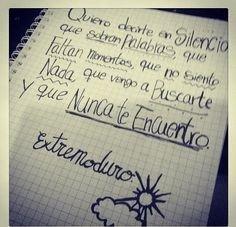 Quiero decirte en Silencio
que sobran Palabras, que
faltan momentos, que no siento
Nada, que vengo a Buscarte
Y que Nunca te Encuentro
Extremoduro.